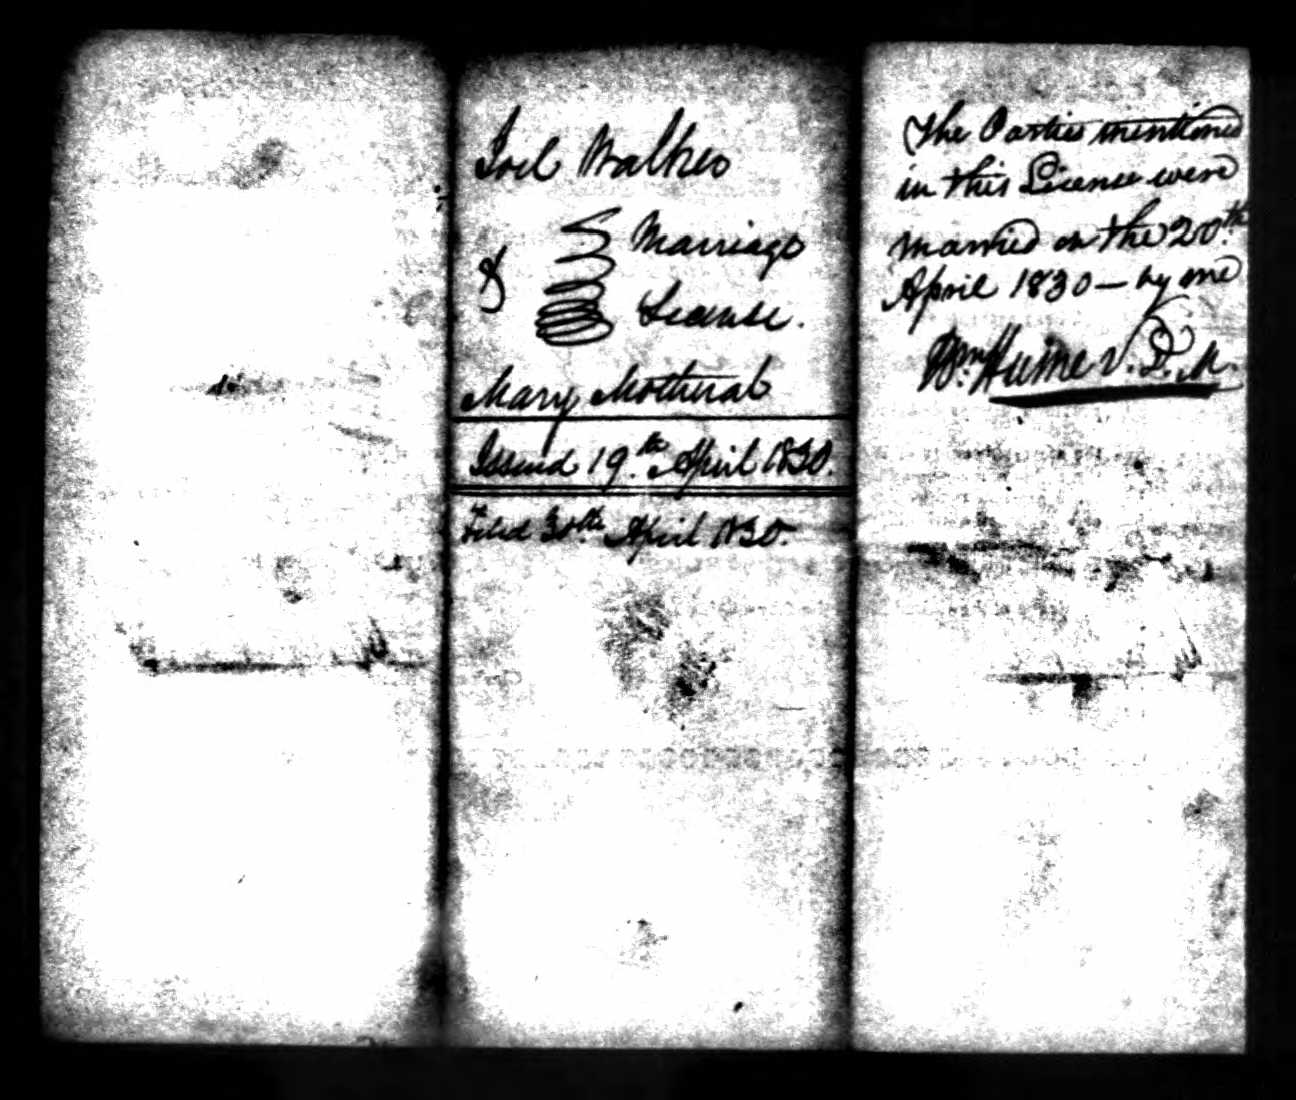 Joel Walker
& Marriage
License.
Mary Motheral
Issued 19.th April 1830.
Filed 30th April 1830.
The Parties mentioned
in this License were
married on the 20.th
April 1830 — by me
Wm. Hume V. D. M.